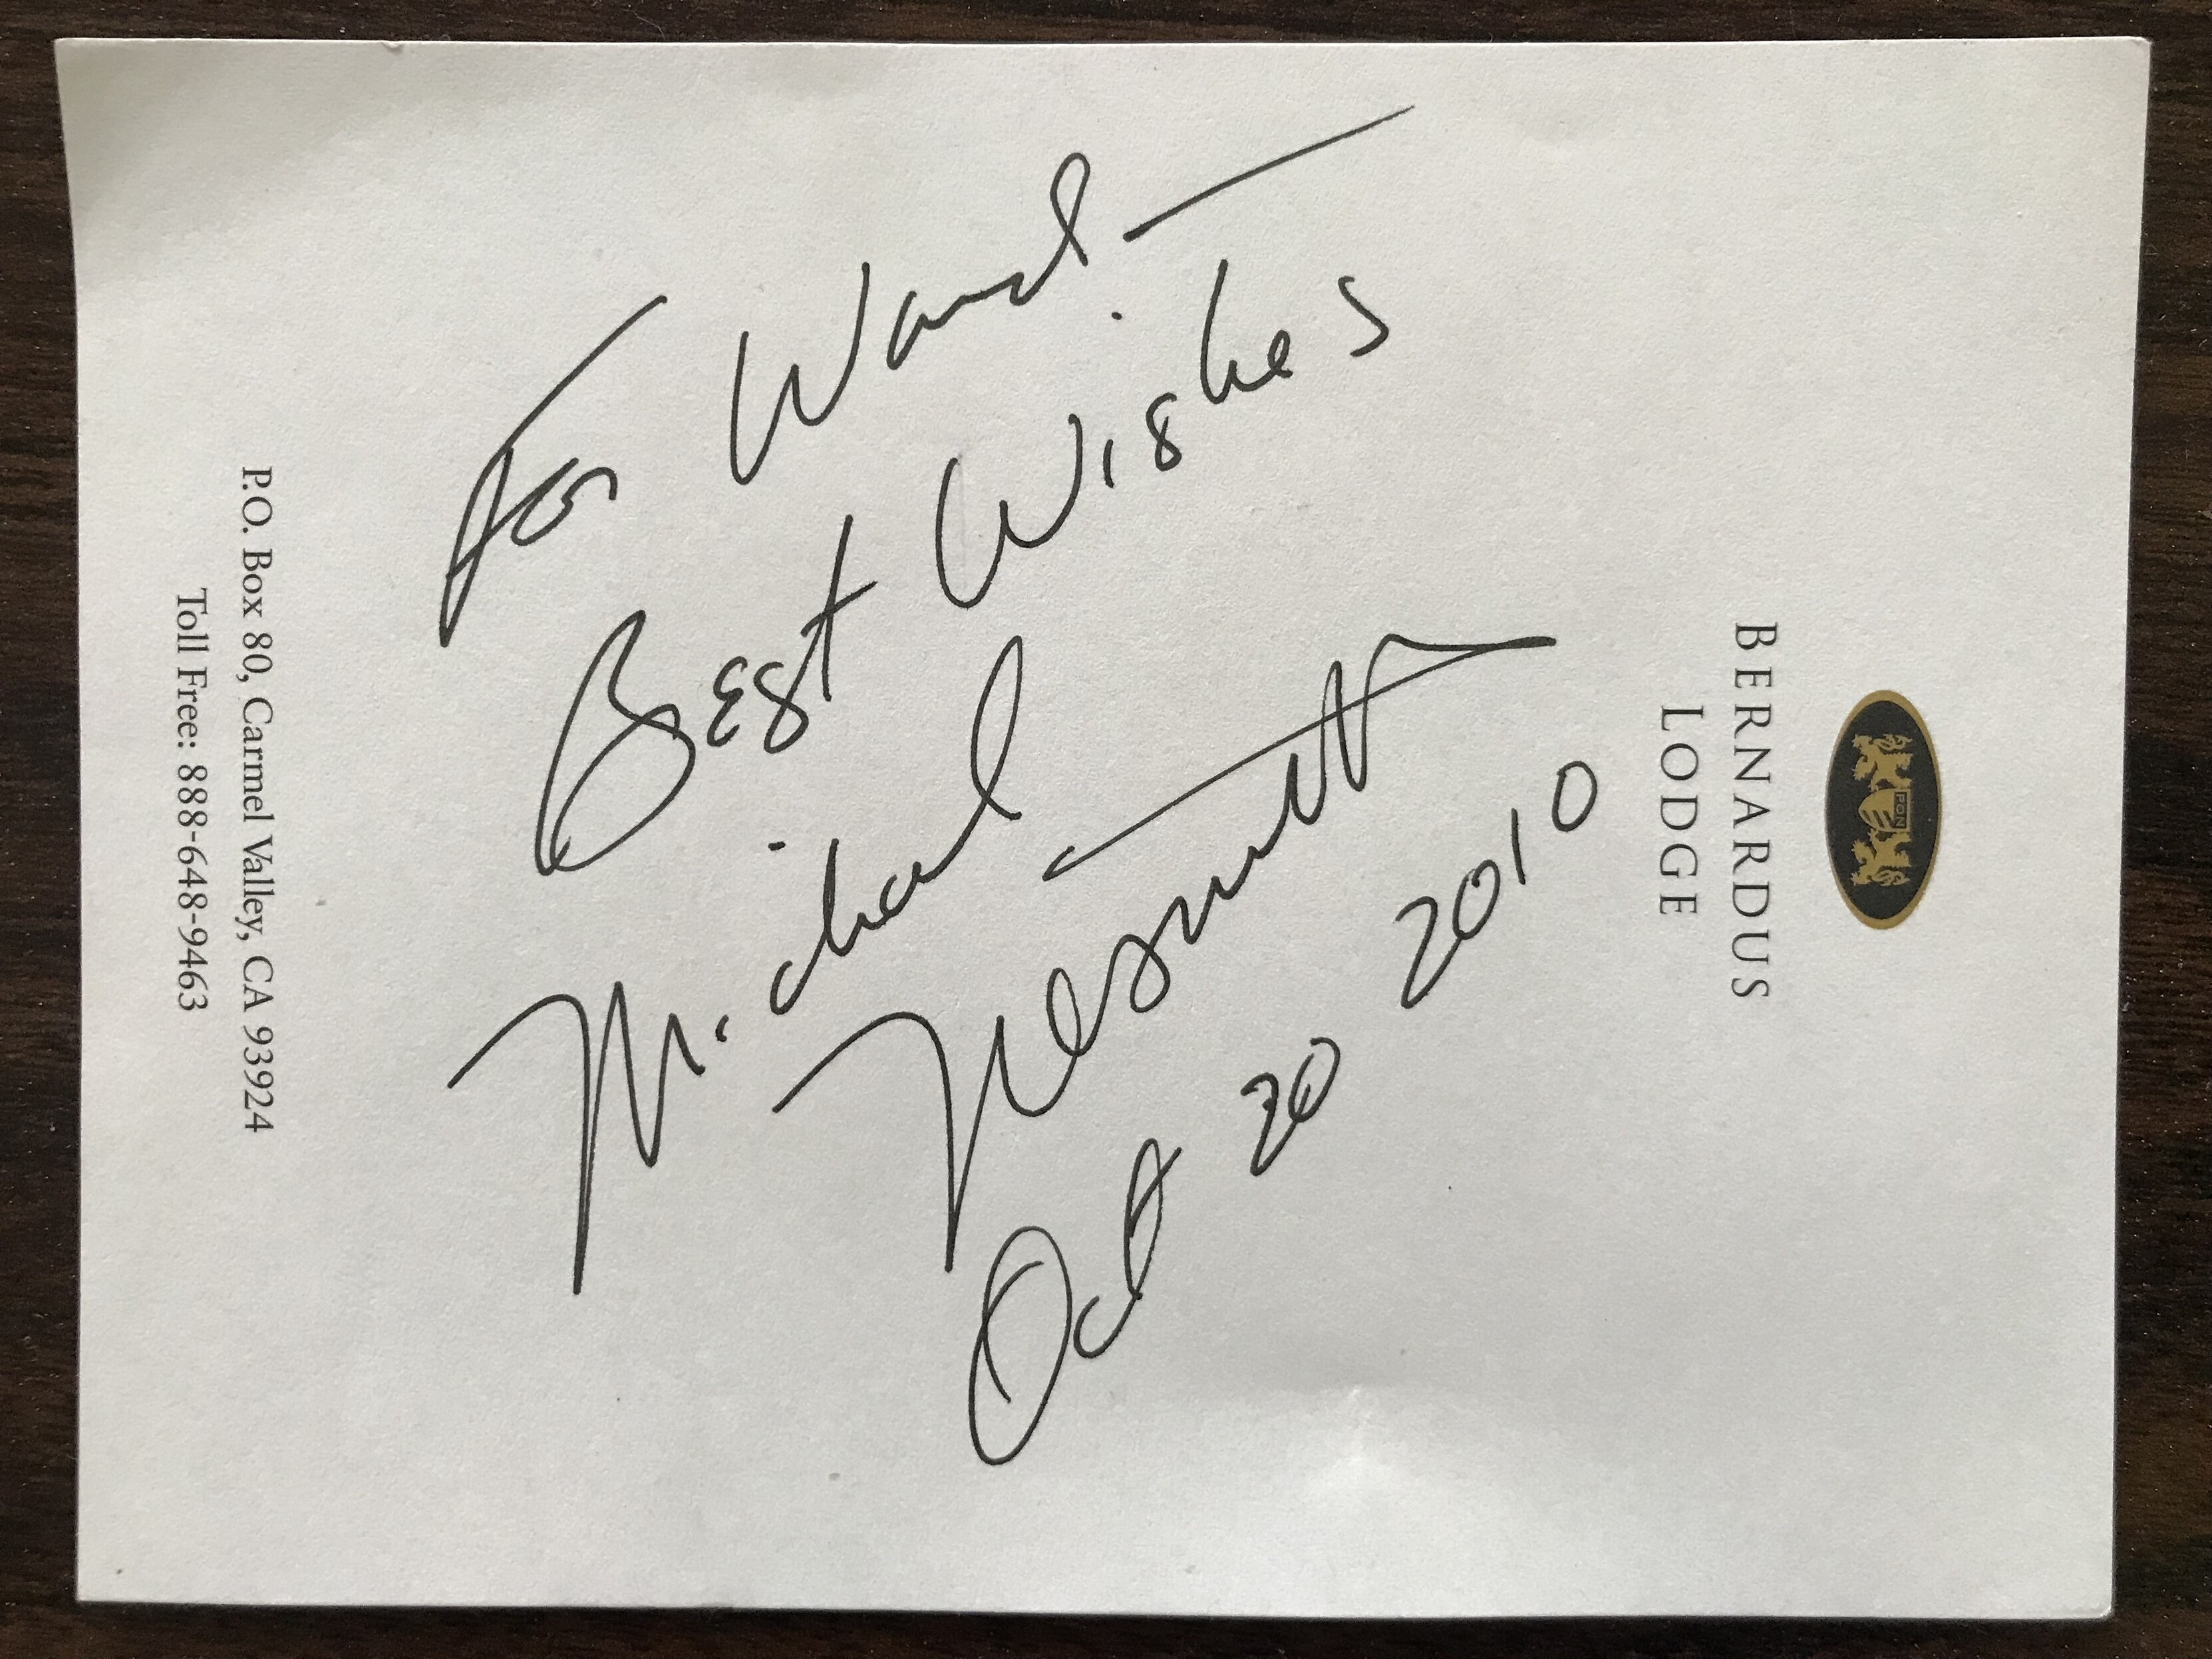 PON
BERNARDUS
LODGE
For
Best Wishes
Michael
Nesmith
Oct 20 2010
P.O. Box 80, Carmel Valley, CA 93924
Toll Free: 888-648-9463